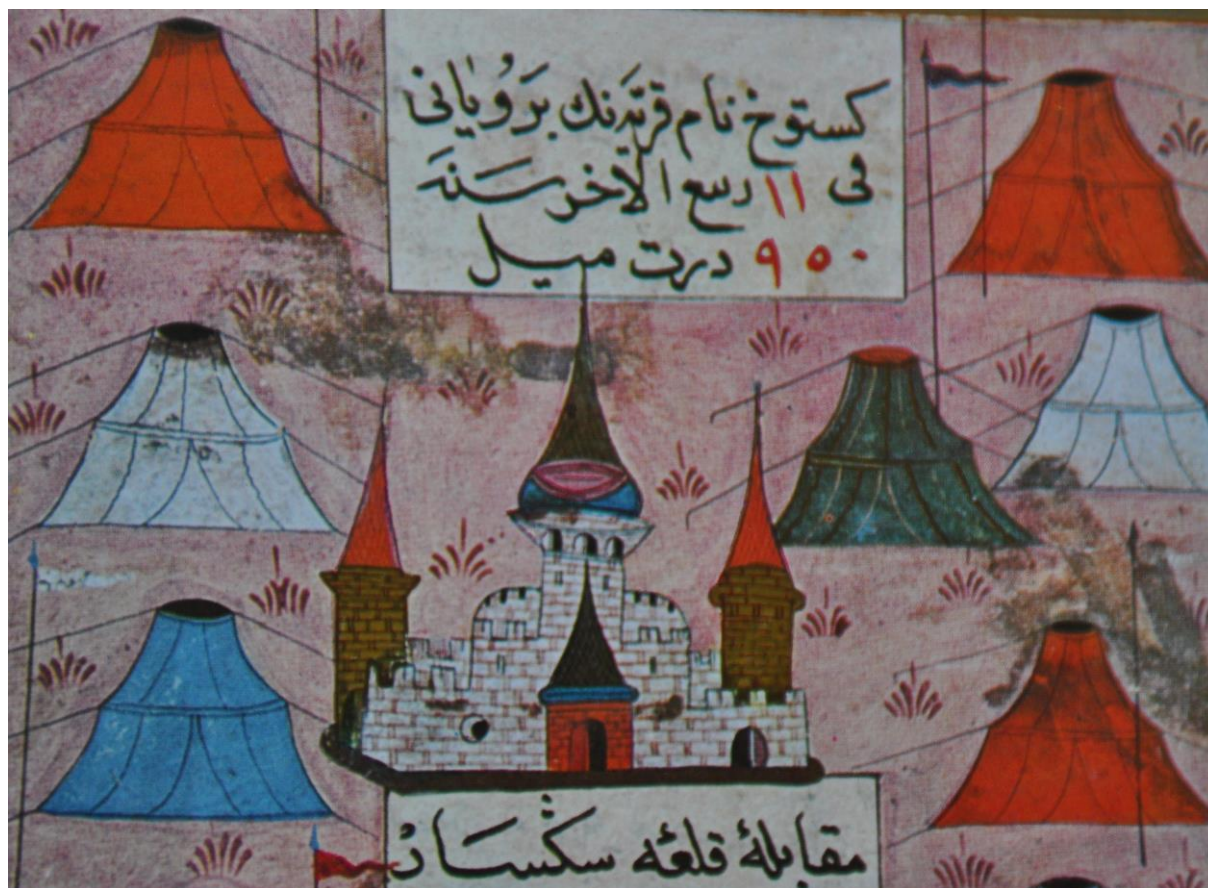 كستوخ نام قريه‌نك بر و يانى
فى ١١ ربيع الآخر سنه
٩٥٠ درت ميل
مقابلهٔ قلعهٔ سكسار